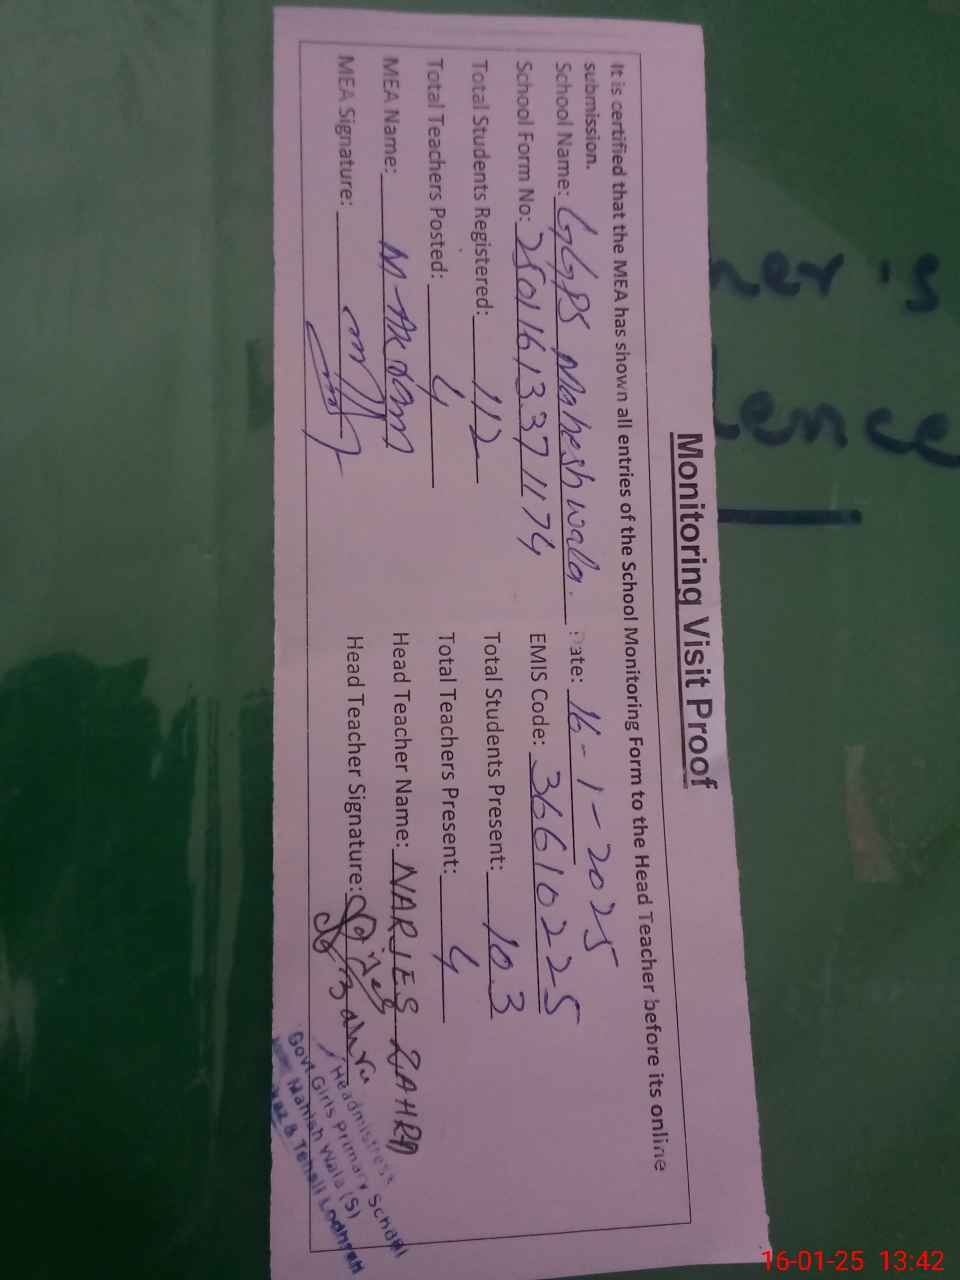 Monitoring Visit Proof
It is certified that the MEA has shown all entries of the School Monitoring Form to the Head Teacher before its online
submission.
School Name: GGPS Maheshwala. Date: 16-1-2025
School Form No: 25011613371174 EMIS Code: 36610225
Total Students Registered: 112 Total Students Present: 103
Total Teachers Posted: 4 Total Teachers Present: 4
MEA Name: M Akram Head Teacher Name: NARJES ZAHRA
MEA Signature: Head Teacher Signature:
Headmistress
Govt Girls Primary School
Mahish Wala (S)
& Tehsil Lodhran
ence
16-01-25 13:42